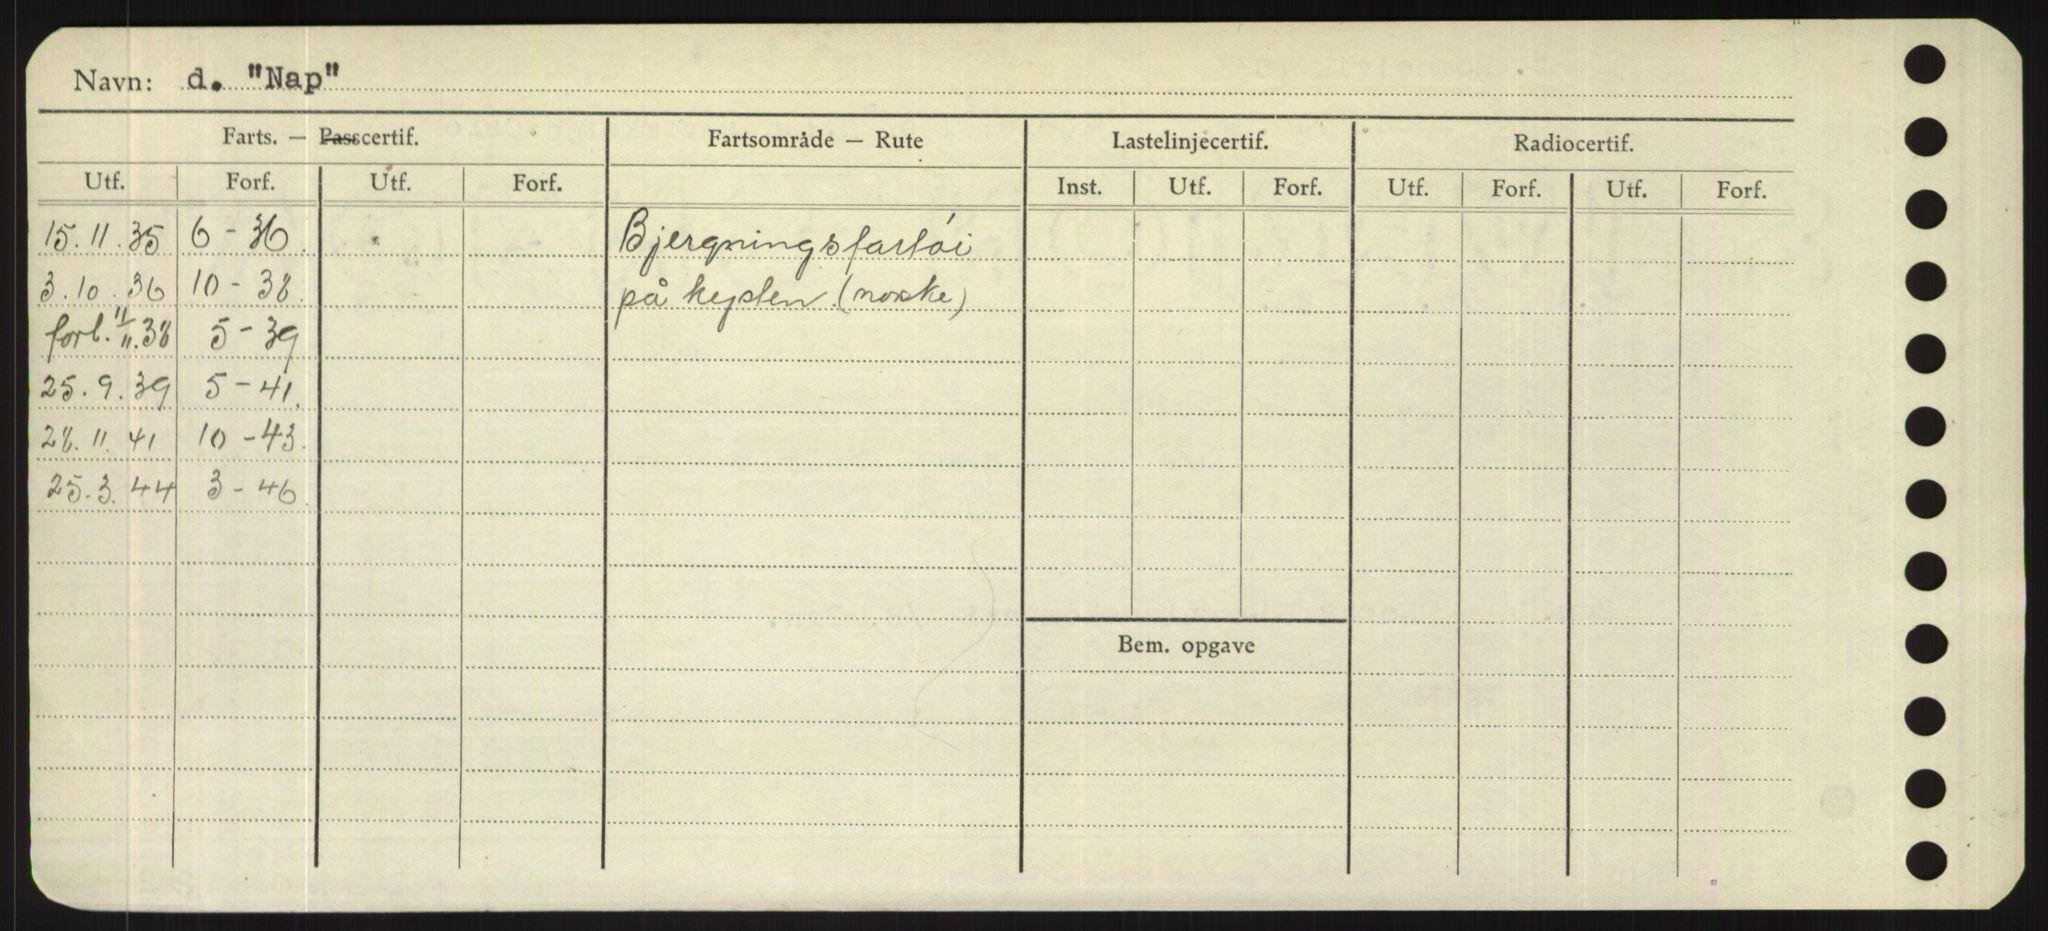 Navn: d. "Nap"
Farts. — Passcertif. Fartsområde — Rute Lastelinjecertif. Radiocertif.
Utf. Forf. Utf. Forf. Inst. Utf. Forf. Utf. Forf. Utf. Forf.
15.11.35 6-36. Bjergningsfartøi
3.10.36 10-38. på kysten (norske)
forl. 11/11.38 5-39
25.9.39 5-41.
28.11.41 10-43.
25.3.44 3-46.
Bem. opgave